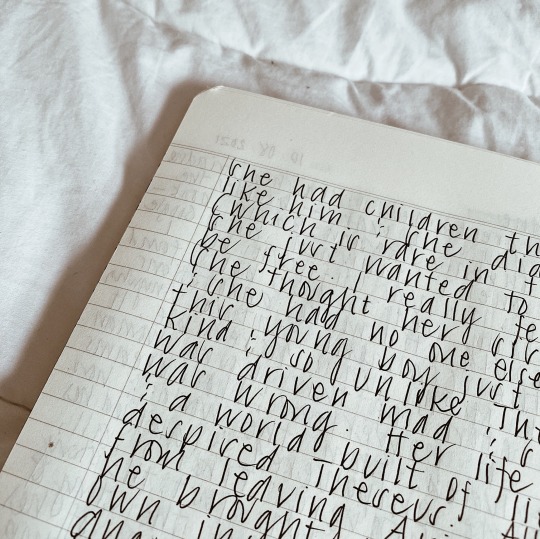 she had children th
like him & she did
(which is rare in
she just wanted to
be free. I really fe
she thought her
& she had no one else
this young boy just
kind & so unlike The
was driven mad &
was wrong. Her life
& a world built of li
despised Theseus.
from leaving
he brought
own